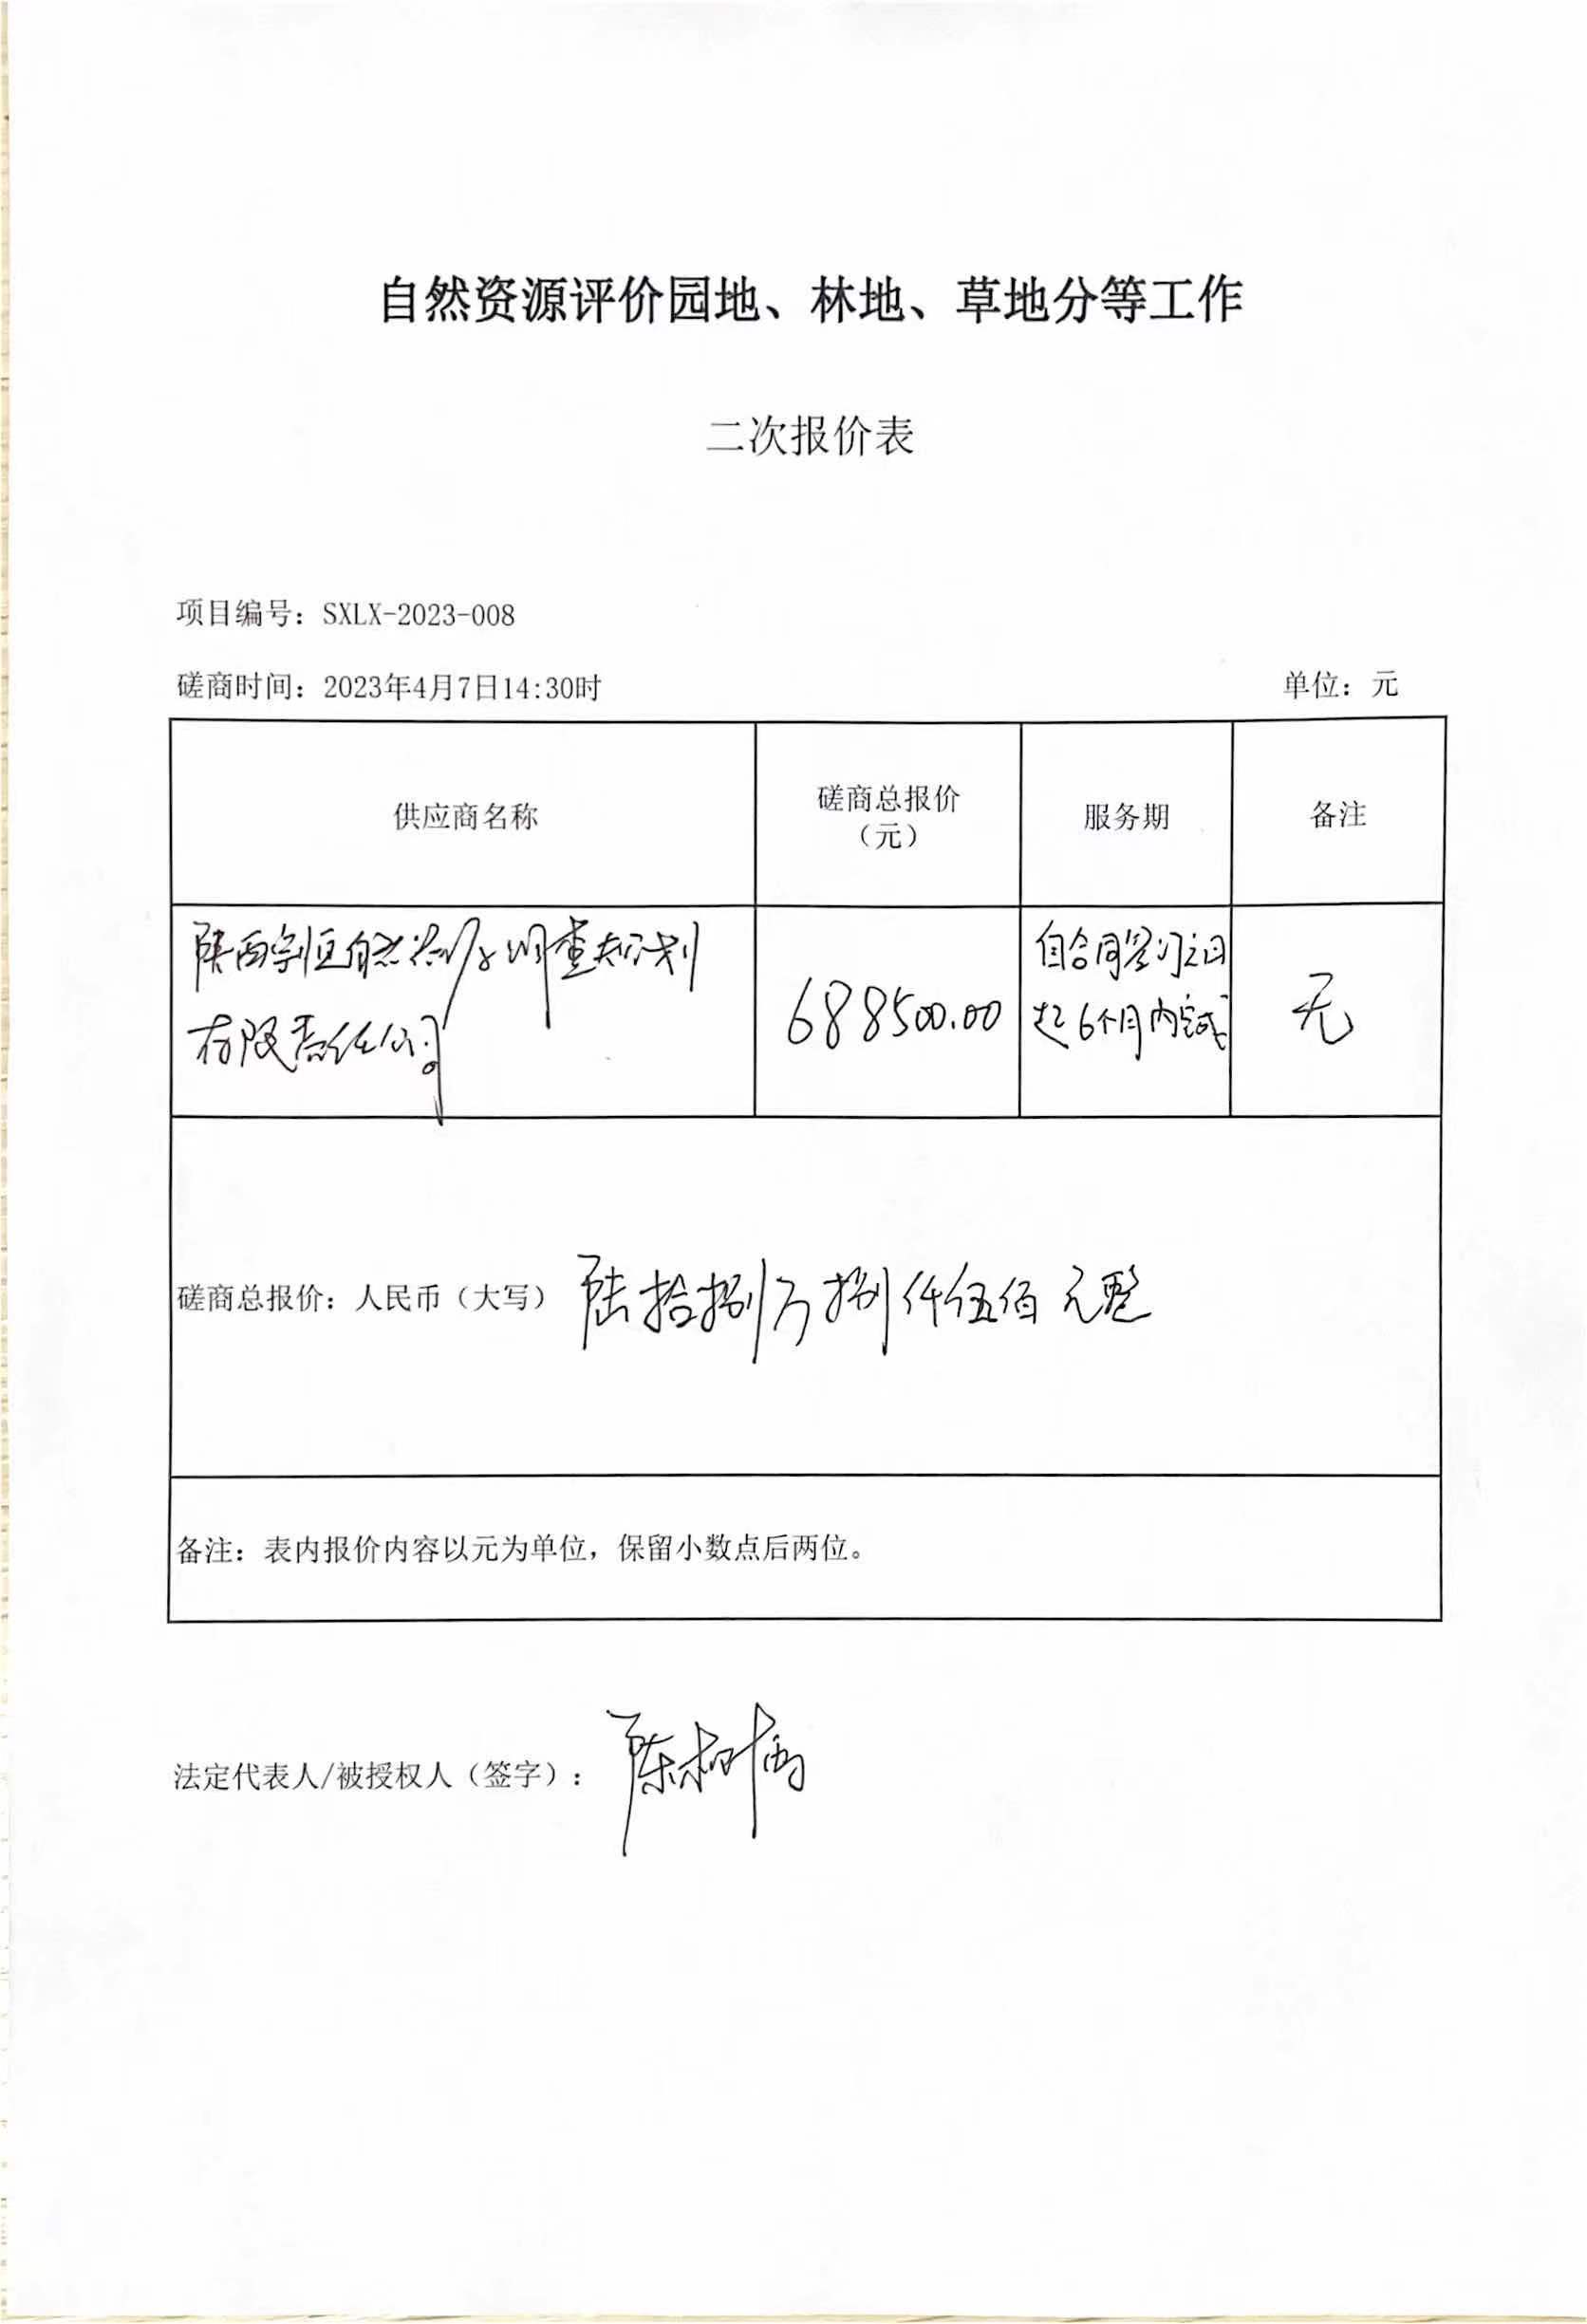 自然资源评价园地、林地、草地分等工作
二次报价表
项目编号：SXLX-2023-008
磋商时间：2023年4月7日14:30时
单位：元
供应商名称
磋商总报价
（元）
服务期
备注
陕西 自然资源调查规划
有限责任公司
688500.00
自合同签订之日
起6个月内完成
无
磋商总报价：人民币（大写） 陆拾捌万捌仟伍佰元整
备注：表内报价内容以元为单位，保留小数点后两位。
法定代表人/被授权人（签字）： 陈